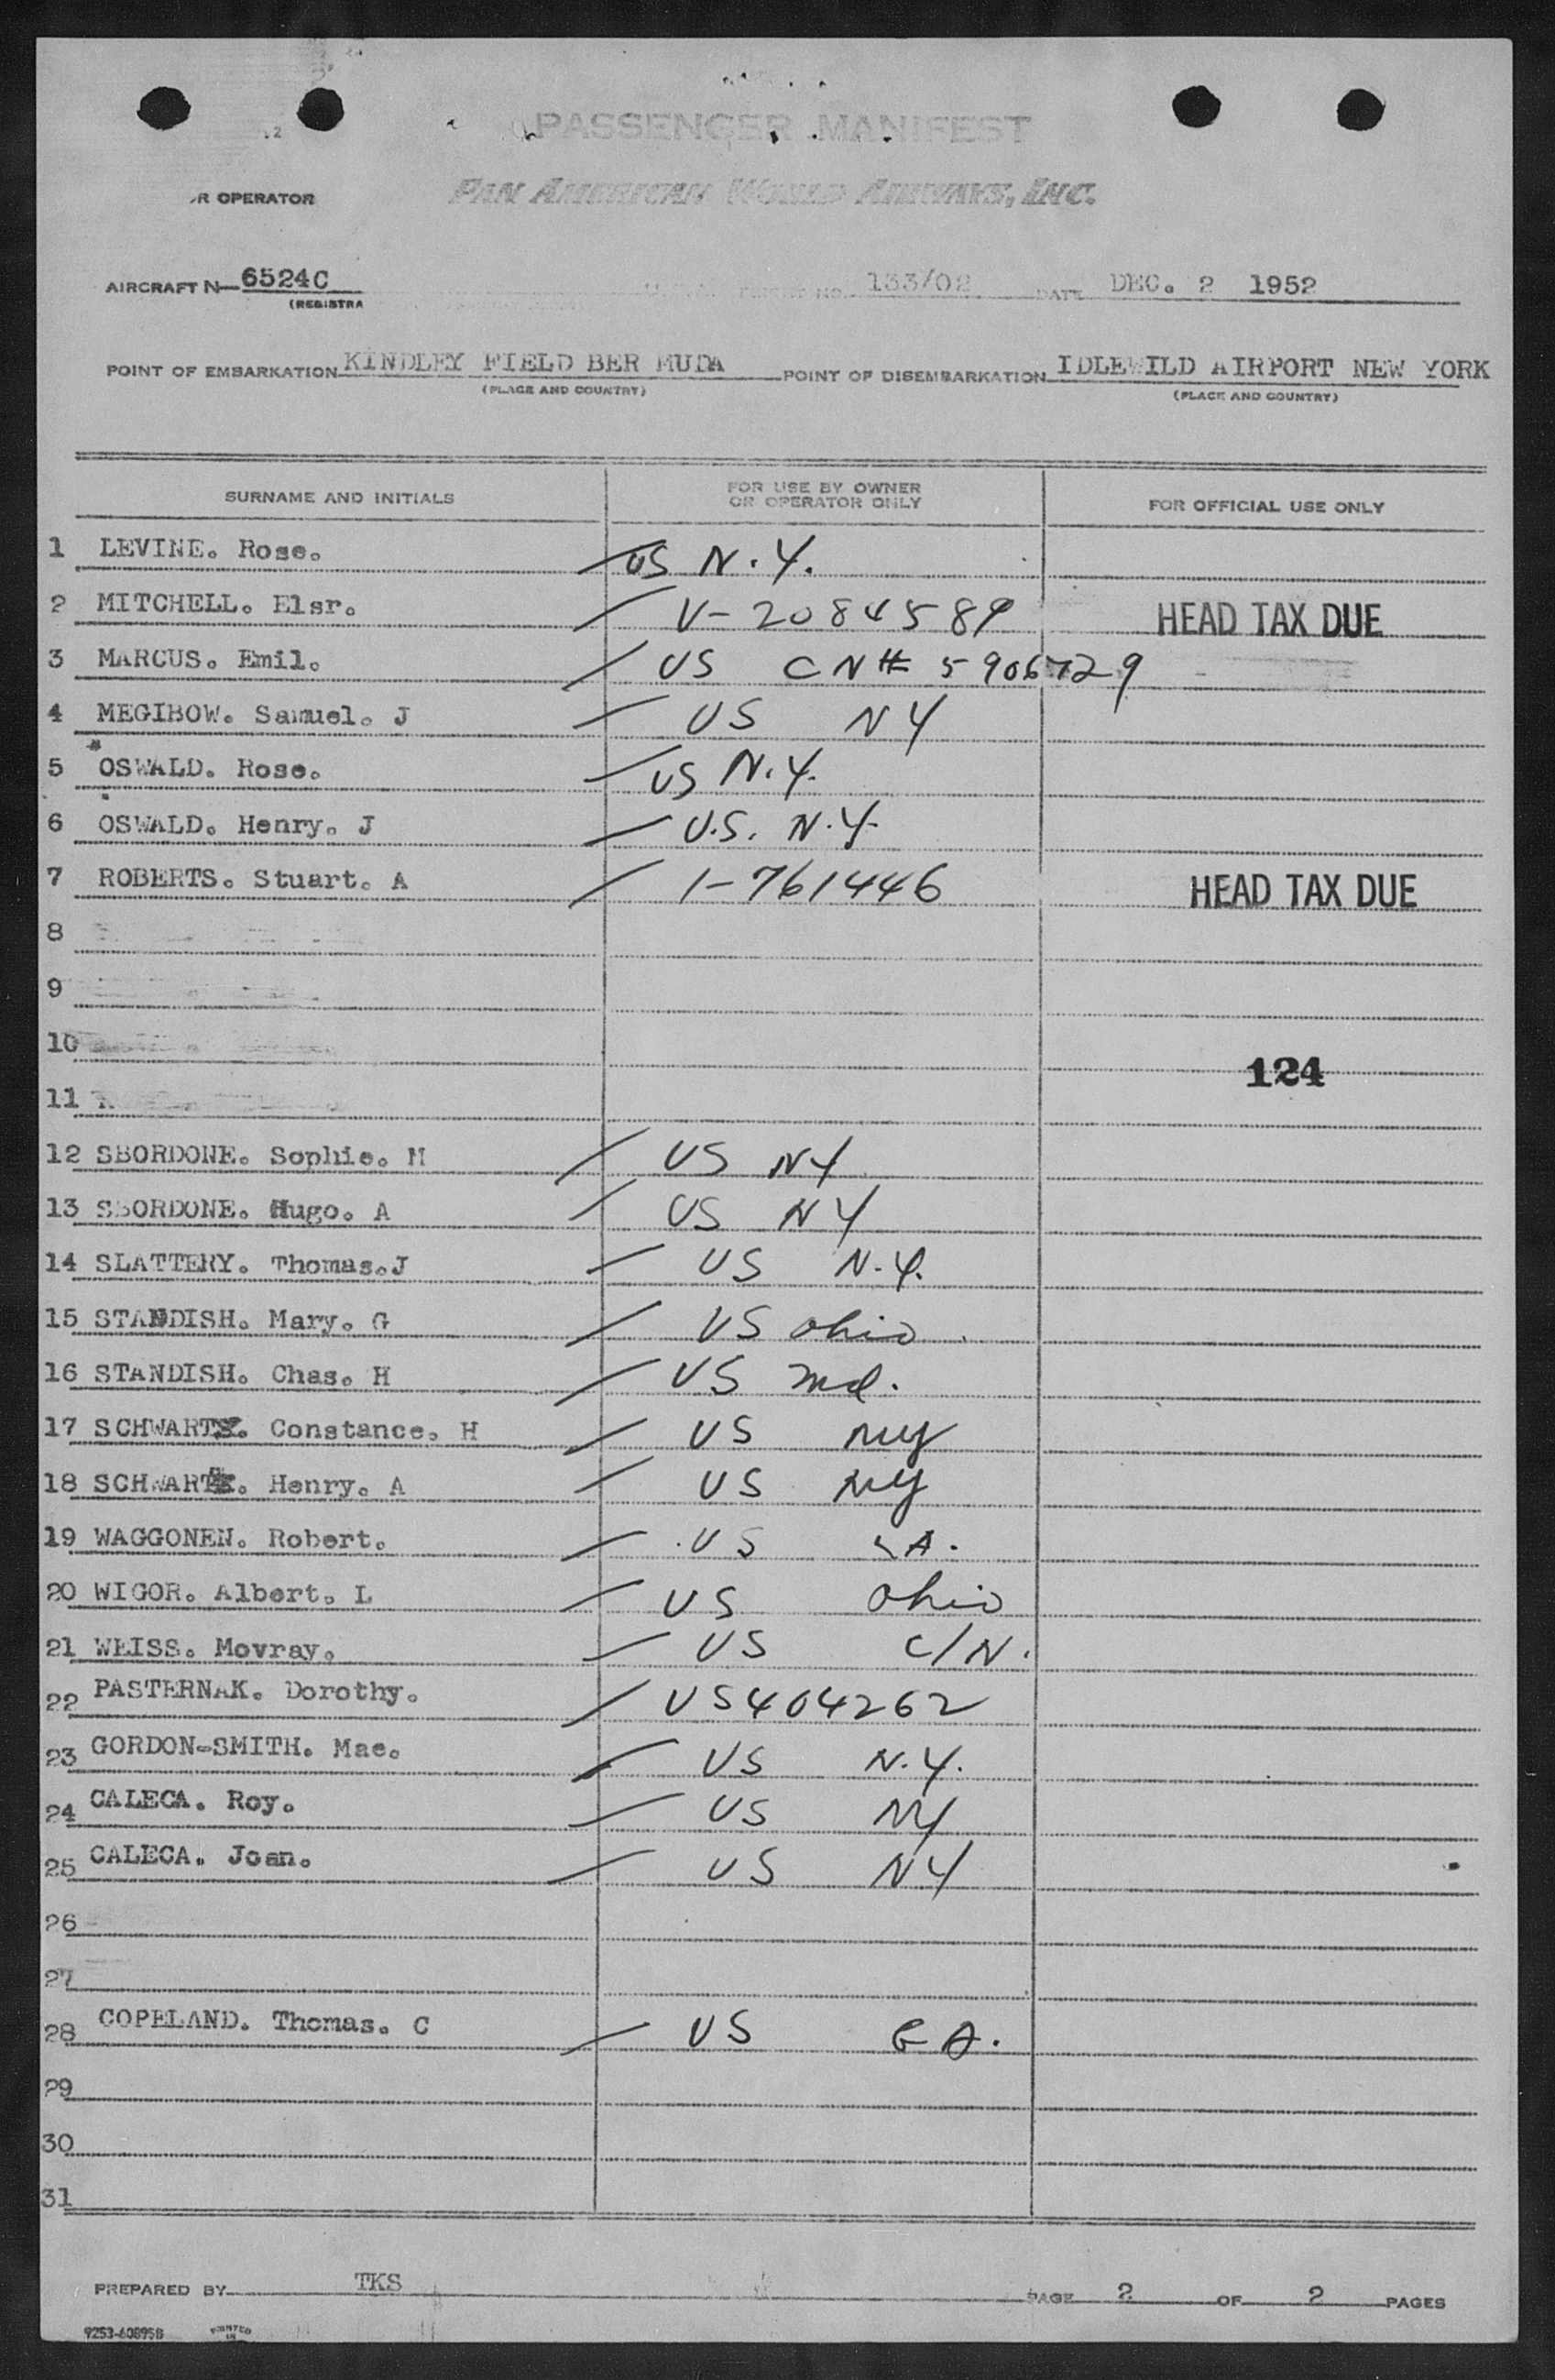 PASSENGER MANIFEST
R OPERATOR PAN AMERICAN WORLD AIRWAYS, INC.
AIRCRAFT N- 6524C 133/02 DATE DEC. 2 1952
(REGISTRA
POINT OF EMBARKATION KINDLEY FIELD BER MUDA POINT OF DISEMBARKATION IDLEWILD AIRPORT NEW YORK
(PLACE AND COUNTRY) (PLACE AND COUNTRY)
SURNAME AND INITIALS FOR USE BY OWNER OR OPERATOR ONLY FOR OFFICIAL USE ONLY
1 LEVINE. Rose. US N.Y.
2 MITCHELL. Elsr. V-2084589 HEAD TAX DUE
3 MARCUS. Emil. US CN# 5906729
4 MEGIBOW. Samuel. J US NY
5 OSWALD. Rose. US N.Y.
6 OSWALD. Henry. J U.S. N.Y.
7 ROBERTS. Stuart. A 1-761446 HEAD TAX DUE
8
9
10 124
11
12 SBORDONE. Sophie. M US NY
13 SBORDONE. Hugo. A US NY
14 SLATTERY. Thomas.J US N.Y.
15 STANDISH. Mary. G US Ohio
16 STANDISH. Chas. H US Md.
17 SCHWARTZ. Constance. H US NY
18 SCHWARTZ. Henry. A US NY
19 WAGGONEN. Robert. US
20 WIGOR. Albert. L US Ohio
21 WEISS. Movray. US C/N.
22 PASTERNAK. Dorothy. US404262
23 GORDON-SMITH. Mae. US N.Y.
24 CALECA. Roy. US NY
25 CALECA. Joan. US NY
26
27
28 COPELAND. Thomas. C US GA.
29
30
31
PREPARED BY TKS PAGE 2 OF 2 PAGES
9253-60895B PRINTED IN